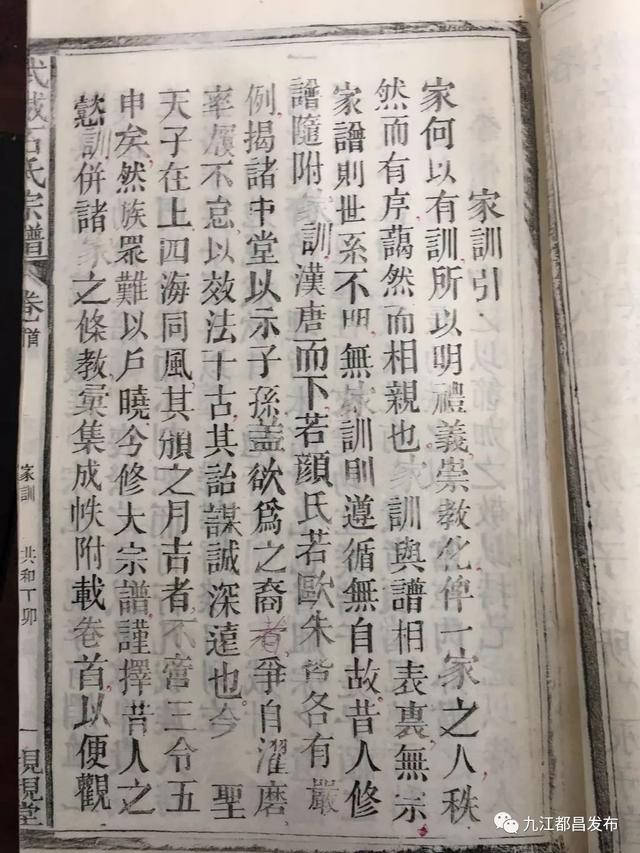 家訓引
家何以有訓所以明禮義崇教化俾一家之人秩
然而有序藹然而相親也家訓與譜相表裏無宗
家譜則世系不明無家訓則遵循無自故昔人修
譜隨附家訓漢唐而下若顏氏若歐朱皆各有嚴
例揭諸中堂以示子孫盖欲爲之裔者爭自濯磨
率履不怠以效法千古其詒謀誠深遠也今 聖
天子在上四海同風其頒之月吉者不啻三令五
申矣然族眾難以戶曉今修大宗譜謹擇昔人之
懿訓併諸家之條教彙集成帙附載卷首以便觀
武城石氏宗譜
卷首
家訓
共和丁卯
一硯堂
九江都昌发布